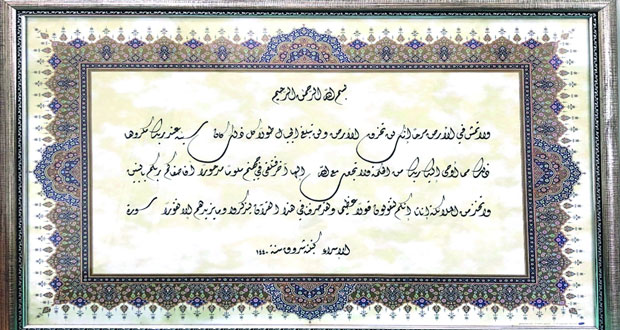 بسم الله الرحمن الرحيم
ولا تمش في الأرض مرحا إنك لن تخرق الأرض ولن تبلغ الجبال طولا كل ذلك كان سيئه عند ربك مكروها
ذلك مما أوحى إليك ربك من الحكمة ولا تجعل مع الله إلها آخر فتلقى في جهنم ملوما مدحورا أفأصفاكم ربكم بالبنين
واتخذ من الملائكة إناثا إنكم لتقولون قولا عظيما ولقد صرفنا في هذا القرآن ليذكروا وما يزيدهم إلا نفورا سورة
الإسراء كتبته شروق سنة ١٤٤٠